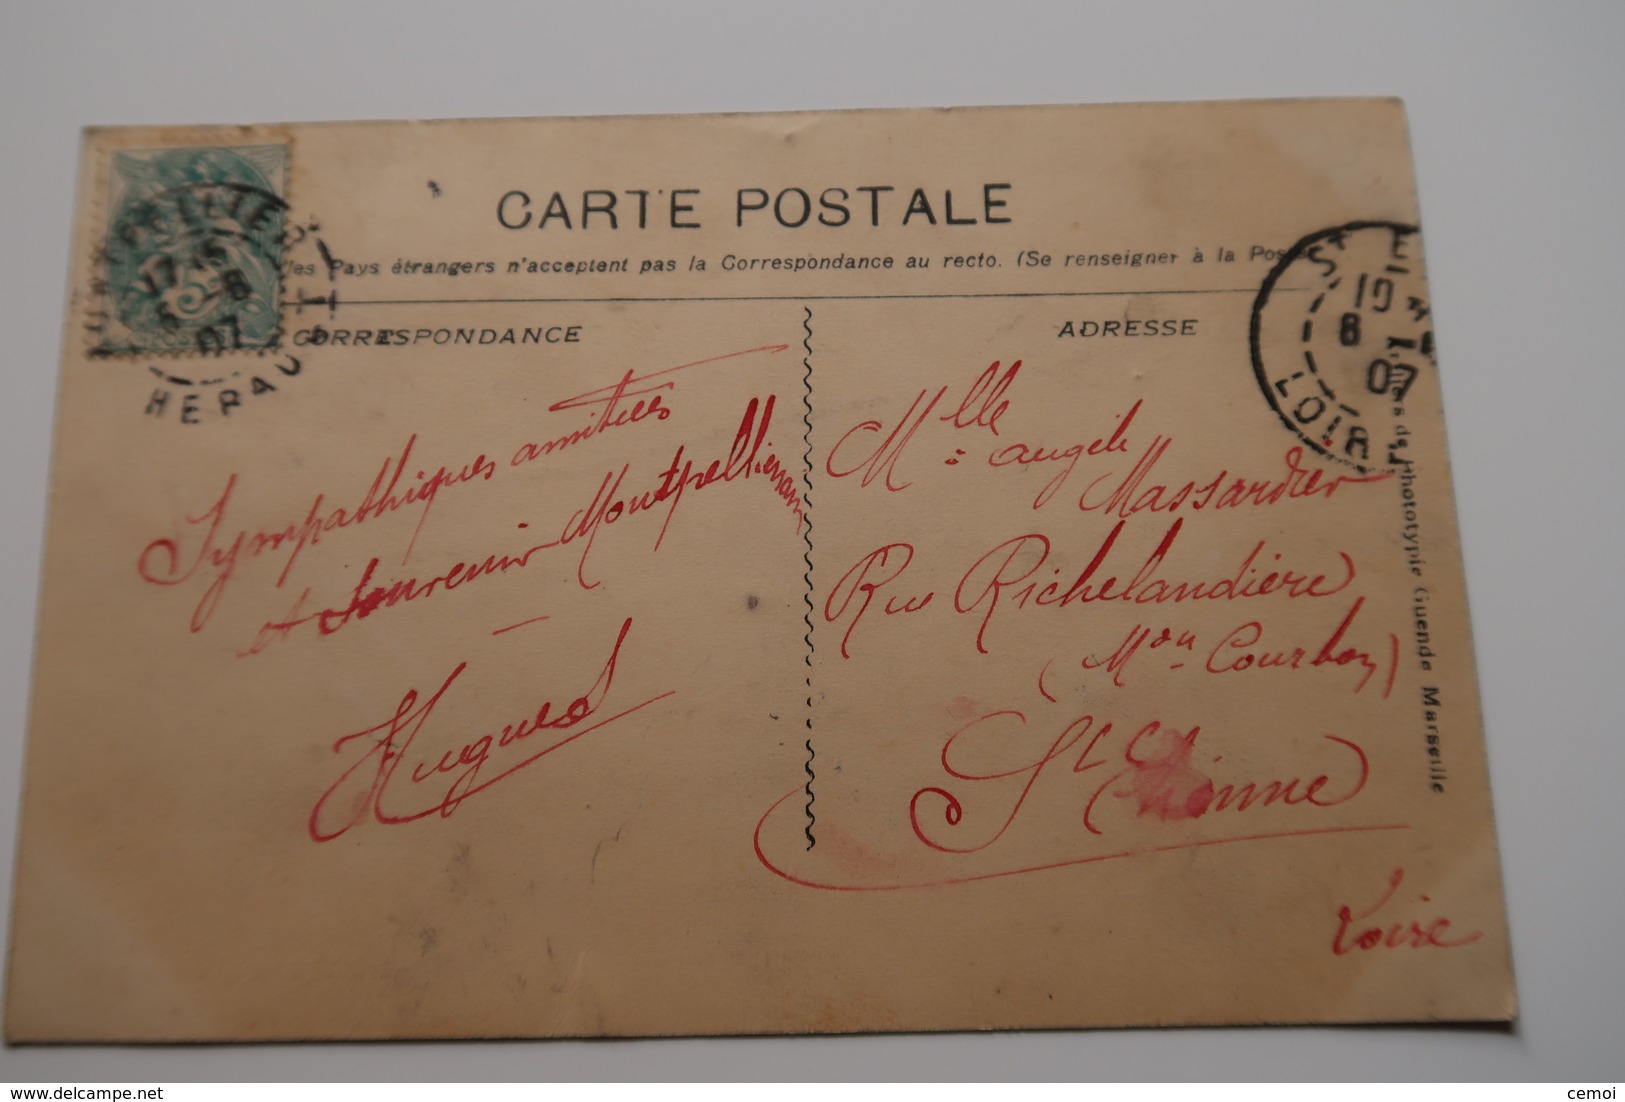 CARTE POSTALE
les Pays étrangers n'acceptent pas la Correspondance au recto. (Se renseigner à la Pos
CORRESPONDANCE
ADRESSE
17 15
6 - 8
07
HERAULT
ST ETIE
10
8 7
07
LOIRE
Sympathiques amitiés
et Souvenir Montpellierain
Hugues
Mlle angèle
Massardier
Rue Richelandière
(Mon Courbon)
St Etienne
Loire
de Phototypie Guende Marseille
delcampe.net
cemoi